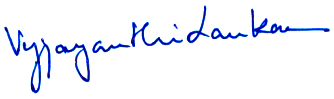 Vyjayanthi Lanka